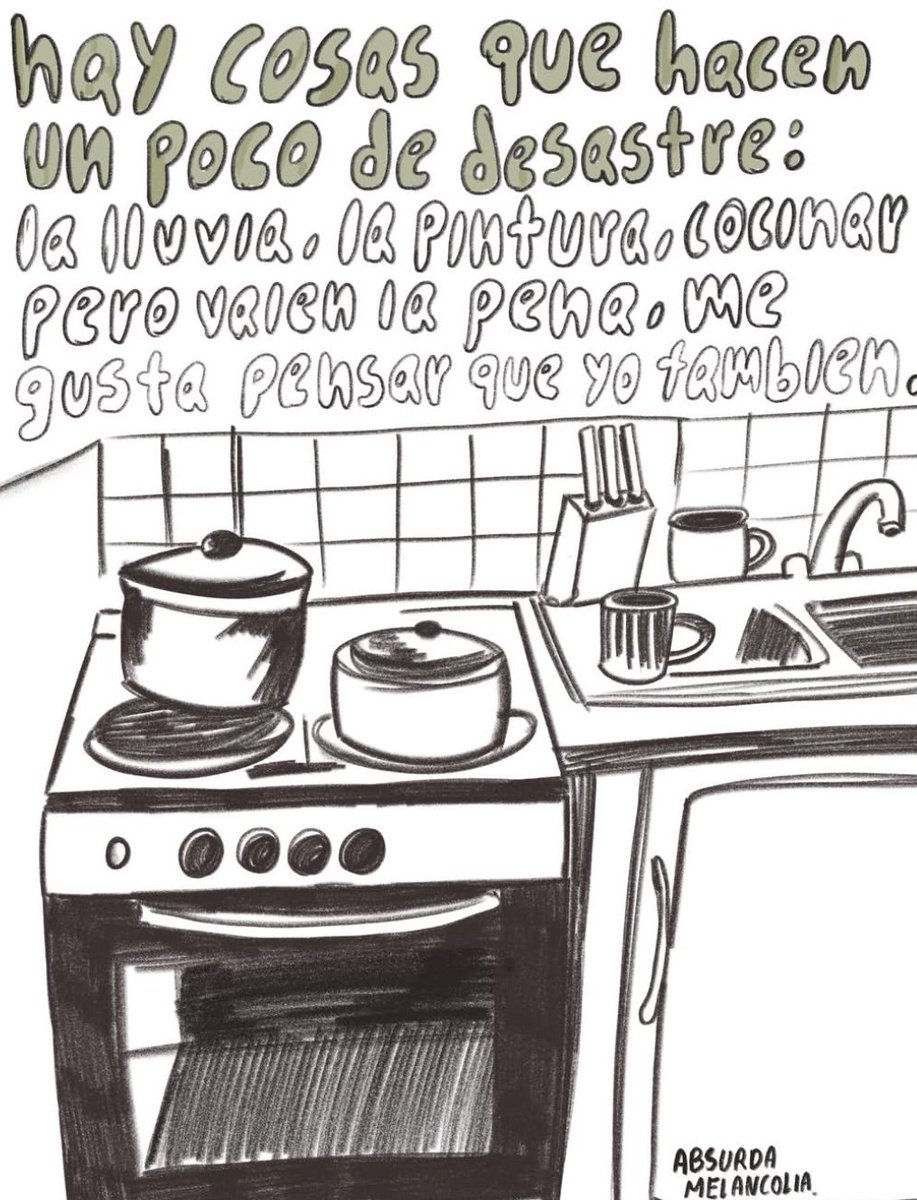 hay cosas que hacen
un poco de desastre:
la lluvia, la pintura, cocinar
pero valen la pena, me
gusta pensar que yo tambien.
ABSURDA
MELANCOLIA